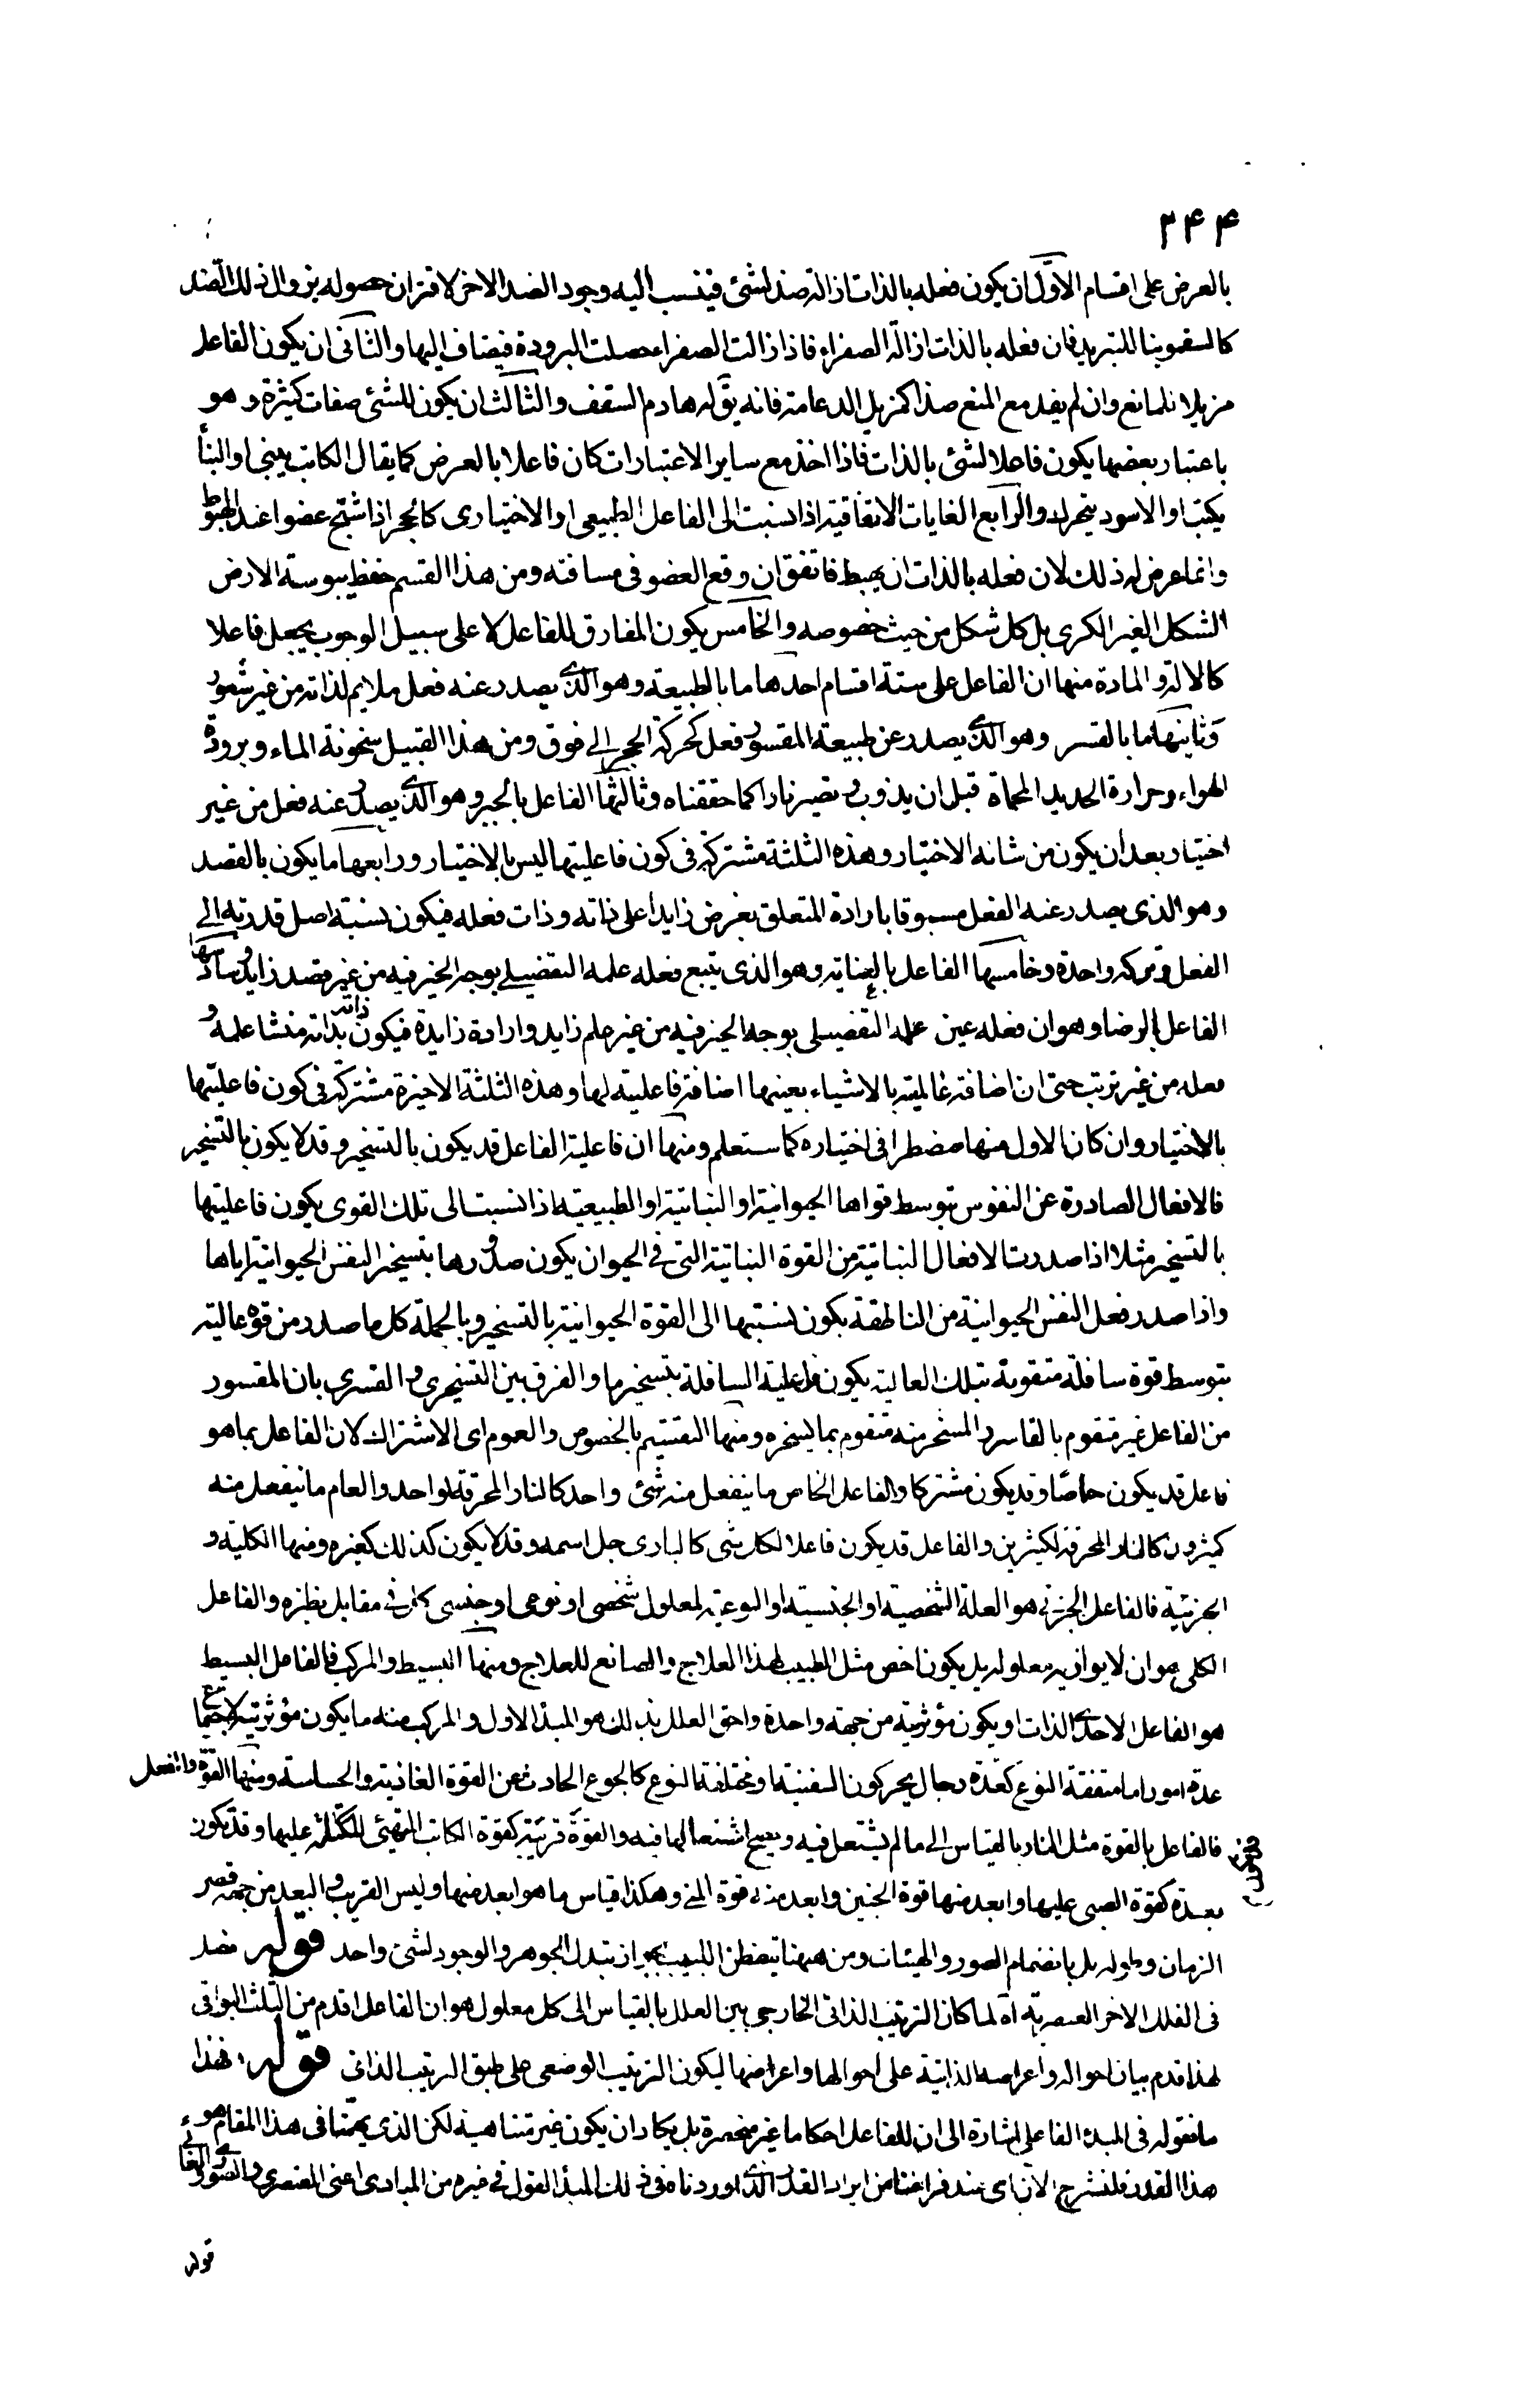 ۲۴۴
بالعرض على اقسام الاول ان يكون فعله بالذات ازالة ضد لشئ فينسب اليه وجود الضد الاخر لاقتران حصوله بزوال ذلك الضد
كالسقمونيا للتبريد فان فعله بالذات ازالة الصفراء فاذا زالت الصفراء حصلت البرودة فيضاف اليها والثانى ان يكون الفاعل
مزيلا للمانع وان لم يفد مع المنع ضدا كمزيل الدعامة فانه يق له هادم السقف والثالث ان يكون للشئ صفات كثيرة وهو
باعتبار بعضها يكون فاعلا لشئ بالذات فاذا اخذ مع ساير الاعتبارات كان فاعلا بالعرض كما يقال الكاتب يبنى او البناء
يكتب او الاسود يتحرك والرابع الغايات الاتفاقية اذا نسبت الى الفاعل الطبيعى او الاختيارى كالحجر اذا شج عضوا عند الهبوط
وانما عرض له ذلك لان فعله بالذات ان يهبط فاتفق ان وقع العضو فى مسافته ومن هذا القسم حفظ يبوسة الارض
الشكل الغير الكرى بل كل شكل من حيث خصوصه والخامس يكون المفارق للفاعل لا على سبيل الوجوب يجعل فاعلا
كالالة والمادة منها ان الفاعل على ستة اقسام احدها ما بالطبيعة وهو الذى يصدر عنه فعل ملايم لذاته من غير شعور
وثانيها ما بالقسر وهو الذى يصدر عن طبيعة المقسور فعل كحركة الحجر الى فوق ومن هذا القبيل سخونة الماء وبرودة
الهواء وحرارة الحديد المحماة قبل ان يذوب ويصير نارا كما حققناه وثالثها الفاعل بالجبر وهو الذى يصدر عنه فعل من غير
اختيار بعد ان يكون من شانه الاختيار وهذه الثلثة مشتركة فى كون فاعليتها ليس بالاختيار ورابعها ما يكون بالقصد
وهو الذى يصدر عنه الفعل مسبوقا بارادة المتعلق بغرض زايدا على ذاته وذات فعله فيكون نسبة اصل قدرته الى
الفعل وتركه واحدة وخامسها الفاعل بالعناية وهو الذى يتبع فعله علمه التفضيلى بوجه الخير فيه من غير قصد زايد وسادسها
الفاعل بالرضا وهو ان فعله عين علمه التفضيلى بوجه الخير فيه من غير علم زايد وارادة زايدة فيكون ذاته بذاته منشا علمه و
فعله من غير ترتب حتى ان اضافة عالميته بالاشياء بعينها اضافة فاعليته لها وهذه الثلثة الاخيرة مشتركة فى كون فاعليتها
بالاختيار وان كان الاول منها مضطرا فى اختياره كما ستعلم ومنها ان فاعلية الفاعل قد يكون بالتسخير وقد لا يكون بالتسخير
فالافعال الصادرة عن النفوس بتوسط قواها الحيوانية او النباتية او الطبيعية اذا نسبت الى تلك القوى يكون فاعليتها
بالتسخير مثلا اذا صدرت الافعال النباتية من القوة النباتية التى فى الحيوان يكون صدورها بتسخير النفس الحيوانية اياها
واذا صدر فعل النفس الحيوانية من الناطقة يكون نسبتها الى القوة الحيوانية بالتسخير وبالجملة كل ما صدر من قوة عالية
بتوسط قوة سافلة متقومة بتلك العالية يكون فاعلية السافلة بتسخيرها والفرق بين التسخيرى والقسرى بان المقسور
من الفاعل غير متقوم بالقاسر والمسخر منه متقوم بما يسخره ومنها التقسيم بالخصوص والعموم اى الاشتراك لان الفاعل بما هو
فاعل قد يكون خاصا وقد يكون مشتركا والفاعل الخاص ما ينفعل منه شئ واحد كالنار المحرقة لواحد والعام ما ينفعل منه
كثيرون كالنار المحرقة لكثيرين والفاعل قد يكون فاعلا لكل شى كالبارى جل اسمه وقد لا يكون كذلك كغيره ومنها الكلية و
الجزئية فالفاعل الجزئى هو العلة الشخصية او الجنسية او النوعية لمعلول شخصى او نوعى او جنسى كل فى مقابل نظيره والفاعل
الكلى هو ان لا يوازيه معلوله بل يكون اخص مثل الطبيب لهذا العلاج والصانع للعلاج ومنها البسيط والمركب فالفاعل البسيط
هو الفاعل الاحدى الذات او يكون مؤثريته من جهة واحدة واحق العلل بذلك هو المبدا الاول والمركب منه ما يكون مؤثريته لاجتماع
عدة امور اما متفقة النوع كعدة رجال يحركون السفينة او مختلفة النوع كالجوع الحادث عن القوة الغاذية والحساسة ومنها القوة والفعل
فالفاعل بالقوة مثل النار بالقياس الى ما لم يشتعل فيه ويصح اشتعالها فيه والقوة قريبة كقوة الكاتب المتهيئ للكتابة عليها وقد يكون
بعيدة كقوة الصبى عليها وابعد منها قوة الجنين وابعد منه قوة المنى وهكذا قياس ما هو ابعد منها وليس القريب والبعد من جهة قصر
الزمان وطوله بل بانضمام الصور والهيئات ومن ههنا يتفطن اللبيب بجواز تبدل الجوهر والوجود لشئ واحد قوله فصل
فى العلل الاخر العنصرية آه لما كان الترتيب الذاتى الخارجى بين العلل بالقياس الى كل معلول هو ان الفاعل اقدم من الثلث البواقى
لهذا قدم بيان احواله واعراضه الذاتية على احوالها واعراضها ليكون الترتيب الوضعى على طبق الترتيب الذاتى قوله فهذا
ما نقوله فى المبدء الفاعلى اشارة الى ان للفاعل احكاما غير منحصرة بل يكاد ان يكون غير متناهية لكن الذى يهمنا فى هذا المقام هو
هذا القدر فلنشرح الان اى عند فراغنا من ايراد القدر الذى اوردناه فى ذلك المبدا القول فى غيره من المبادى اعنى العنصرى والصورى والغائى
قوله